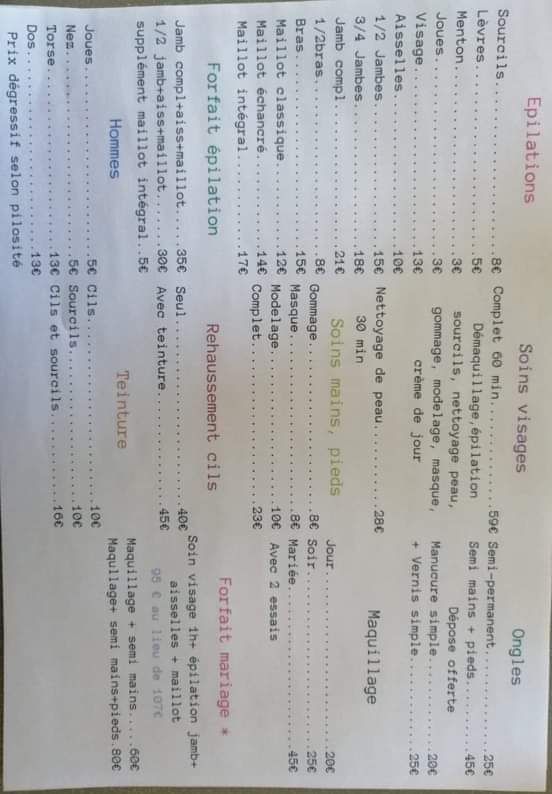 Epilations
Sourcils........................8€
Lèvres..........................5€
Menton..........................3€
Joues...........................3€
Visage..........................13€
Aisselles.......................10€
1/2 Jambes......................15€
3/4 Jambes......................18€
Jamb compl......................21€
1/2bras.........................8€
Bras............................15€
Maillot classique...............12€
Maillot échancré................14€
Maillot intégral................17€
Forfait épilation
Jamb compl+aiss+maillot....35€
1/2 jamb+aiss+maillot......30€
supplément maillot intégral..5€
Hommes
Joues...........................5€
Nez.............................5€
Torse...........................13€
Dos.............................13€
Prix dégressif selon pilosité
Soins visages
Complet 60 min..............59€
Démaquillage,épilation
sourcils, nettoyage peau,
gommage, modelage, masque,
crème de jour
Nettoyage de peau..........28€
30 min
Soins mains, pieds
Gommage.....................8€
Masque......................8€
Modelage....................10€
Complet.....................23€
Rehaussement cils
Seul........................40€
Avec teinture...............45€
Teinture
Cils........................10€
Sourcils....................10€
Cils et sourcils............16€
Ongles
Semi-permanent..............25€
Semi mains + pieds..........45€
Dépose offerte
Manucure simple.............20€
+ Vernis simple.............25€
Maquillage
Jour........................20€
Soir........................25€
Mariée......................45€
Avec 2 essais
Forfait mariage *
Soin visage 1h+ épilation jamb+
aisselles + maillot
95 € au lieu de 107€
Maquillage + semi mains....60€
Maqullage+ semi mains+pieds.80€